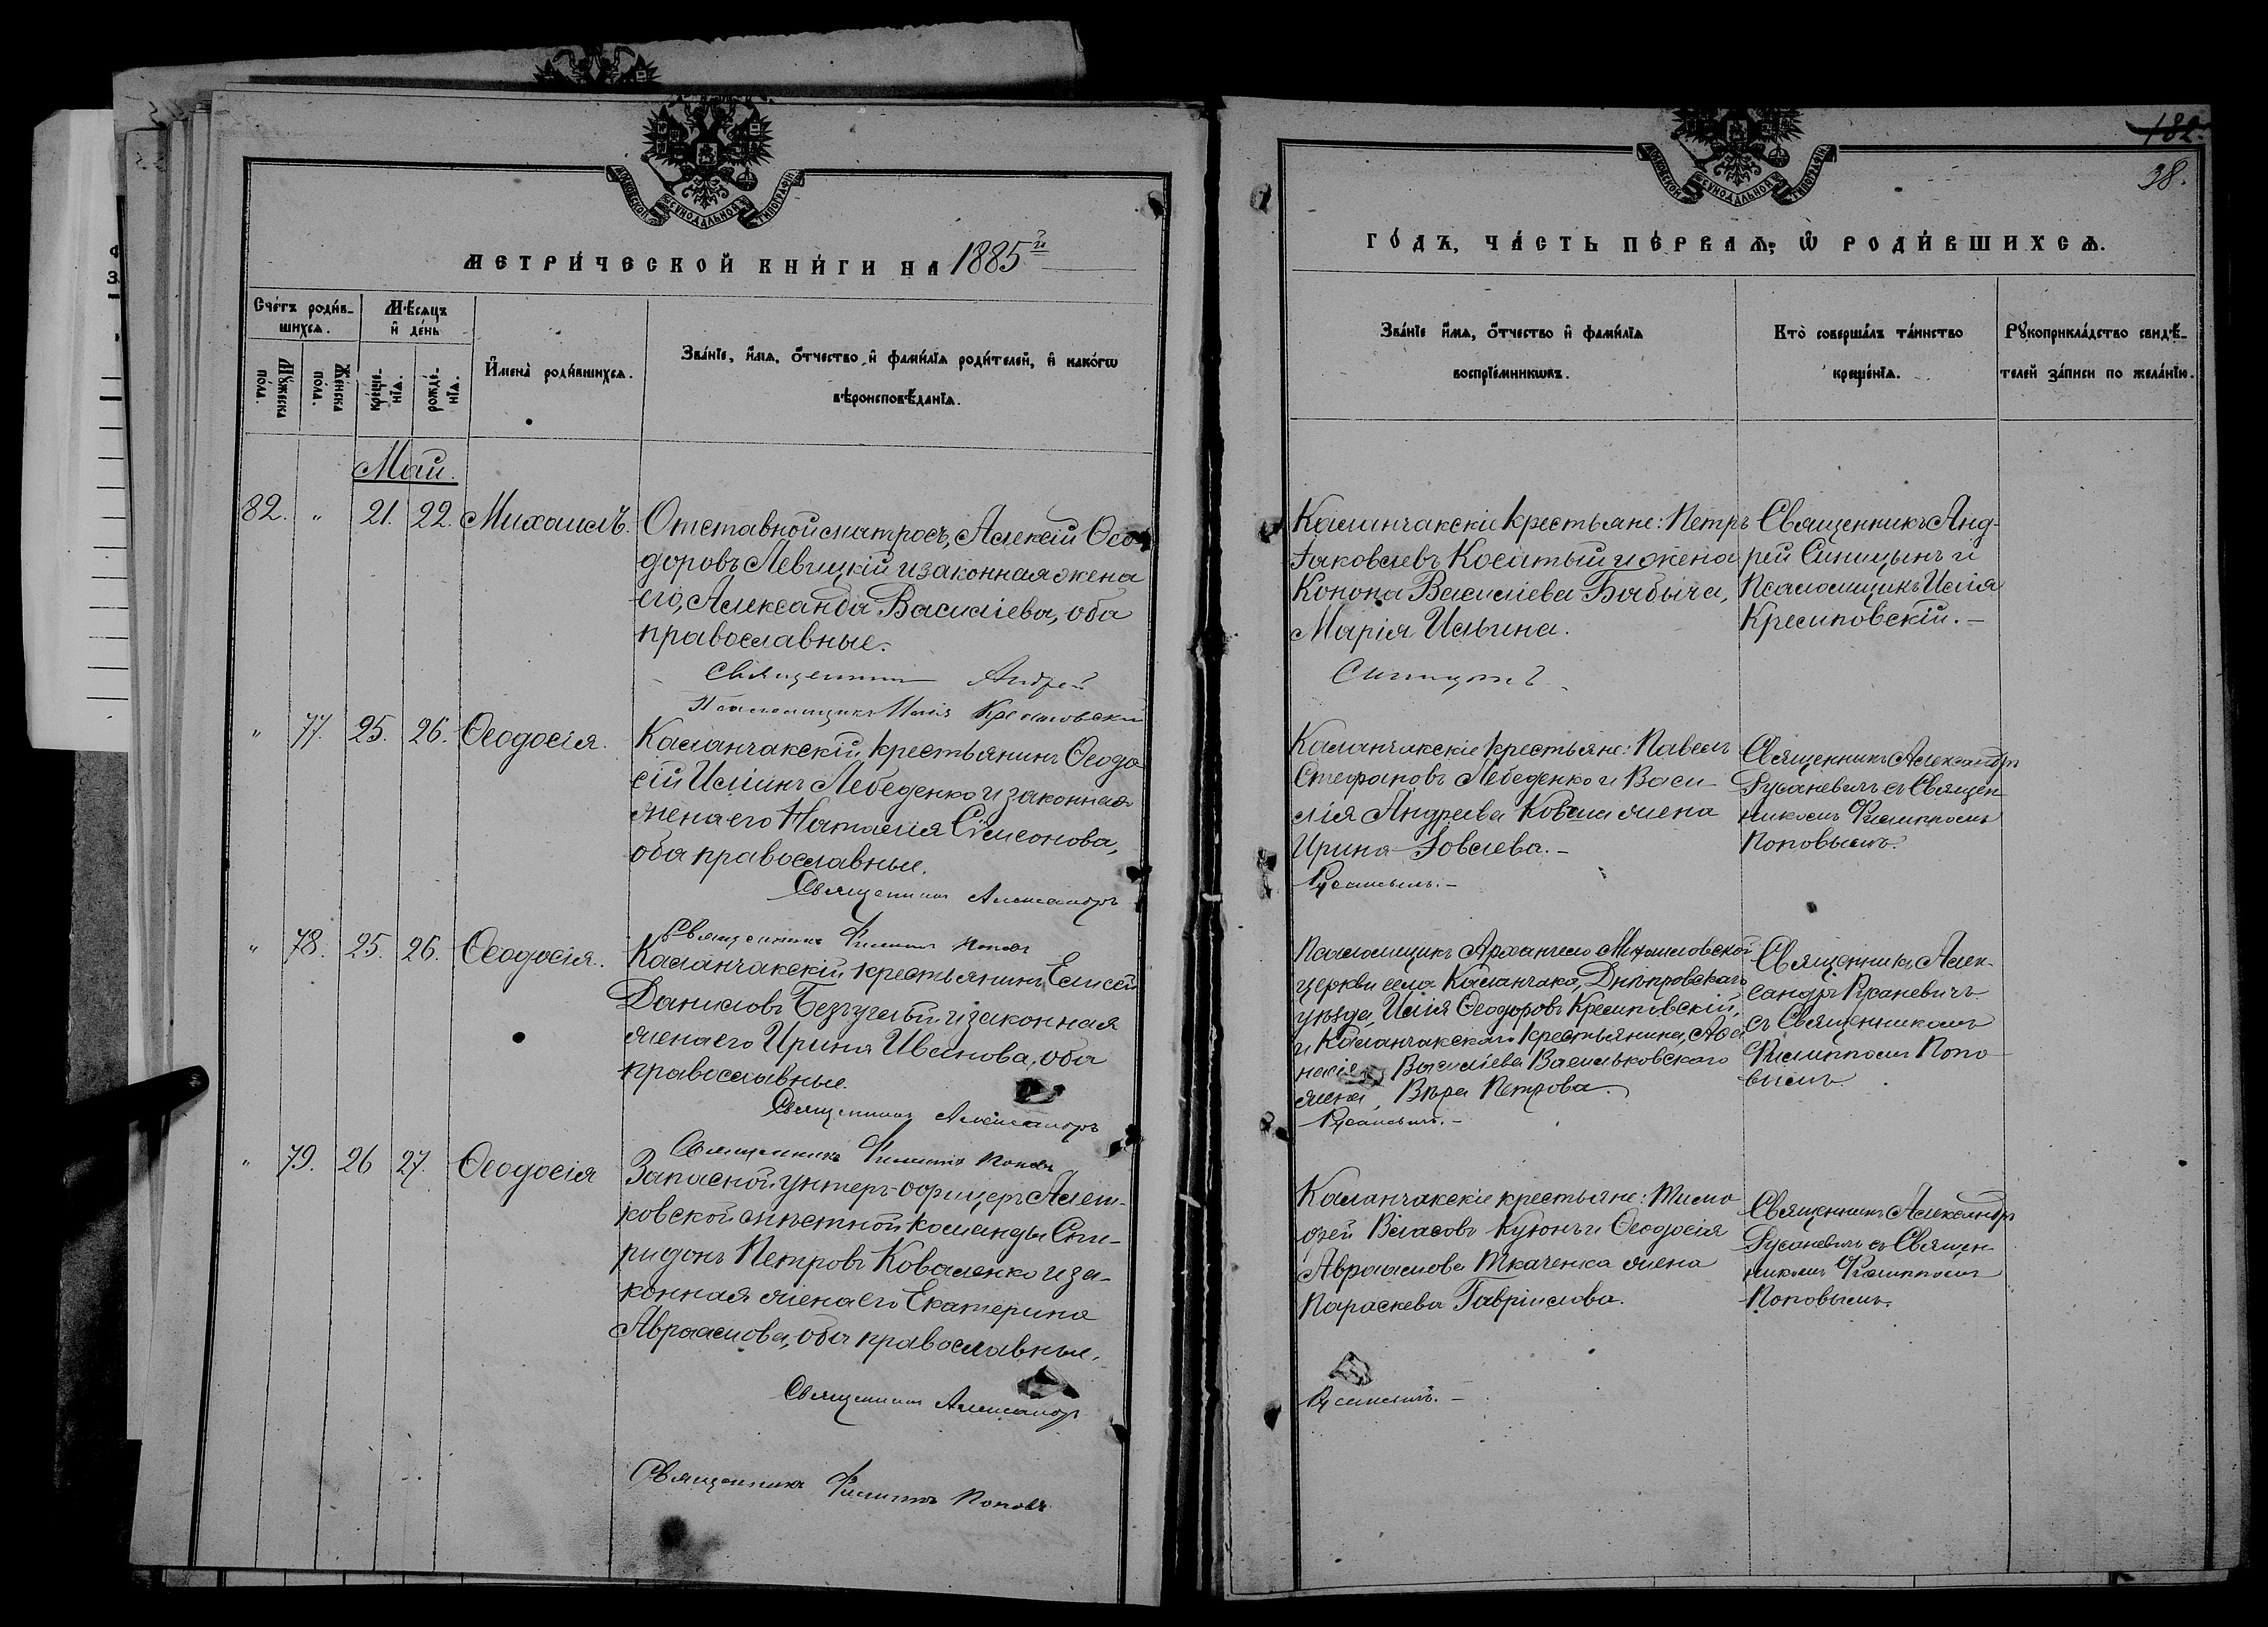 МОСКОВСКОЙ СѴНОДАЛЬНОЙ ТИПОГРАФІИ
МЕТРИ́ЧЕСКОЙ КНИ́ГИ НА 1885й
Сче́тъ роди́в-
шихсѧ.
Мѣ́сяцъ
и҆ де́нь
Мꙋ́жеска
по́ла.
Же́нска
по́ла.
креще́-
нїѧ.
рожде́-
нїѧ.
И҆мена̀ роди́вшихсѧ.
Зва́нїе, и҆́мѧ, ѻ҆́тчество и҆ фами́лїѧ роди́телей, и҆ како́гѡ
вѣроисповѣ́данїѧ.
Май.
82. " 21. 22. Михаилъ.
Отставной матросъ, Алексій Ѳео-
доровъ Левицкій и законная жена
его, Александра Василіева, оба
православные.
Священник Андрей
Псаломщикъ Илія Кресиповскій
" 77. 25. 26. Ѳеодосія.
Каланчакскій крестьянинъ Ѳеодо
сій Иліинъ Лебеденко и законная
жена его Наталія Сімеонова,
оба православные.
Священникъ Александръ
Священникъ Филиппъ Поповъ
" 78. 25. 26. Ѳеодосія.
Каланчакскій крестьянинъ Елисей
Даниловъ Безъуглый и законная
жена его Ирина Иванова, оба
православные.
Священникъ Александръ
Священникъ Филиппъ Поповъ
" 79. 26 27. Ѳеодосія
Запасной унтеръ-офицеръ Алеш-
ковской мѣстной команды Спи-
ридонъ Петровъ Коваленко и за-
конная жена его Екатерина
Авраамова, оба православные.
Священникъ Александръ
Священникъ Филиппъ Поповъ
182.
38.
МОСКОВСКОЙ СѴНОДАЛЬНОЙ ТИПОГРАФІИ
ГО́ДЪ, ЧА́СТЬ ПЕ́РВАѦ, Ѡ҆ РОДИ́ВШИХСѦ.
Зва́нїе и҆́мѧ, ѻ҆́тчество и҆ фами́лїѧ
воспрїе́мникѡвъ.
Кто̀ соверша́лъ та́инство
креще́нїѧ.
Рꙋкоприкла́дство свидѣ́-
телей за́писи по жела́нїю.
Каланчакскіе крестьяне: Петръ
Іаковлевъ Косатый и жена
Конона Василіева Бабыча,
Марія Ильина.
Синицынъ
Священникъ Анд-
рей Синицынъ и
Псаломщикъ Илія
Кресиповскій.-
Каланчакскіе крестьяне: Павелъ
Стефановъ Лебеденко и Васи
лія Андреева Коваля жена
Ирина Іовлева.-
Русаневичъ.-
Священникъ Александръ
Русаневичъ съ Священ
никомъ Филиппомъ
Поповымъ.
Псаломщикъ Архангело Михаиловской
церкви села Каланчака, Днѣпровскаго
уѣзда, Илія Ѳеодоровъ Кресиповскій,
и Каланчакскаго крестьянина, Аѳа
насія Василіева Васильковскаго
жена, Вѣра Петрова.
Русаневичъ.-
Священникъ Алек-
сандръ Русаневичъ
съ Священникомъ
Филиппомъ Попо-
вымъ.
Каланчакскіе крестьяне: Тимо
ѳей Власовъ Куюнъ и Ѳеодосія
Авраамова Ткаченка жена
Параскева Гавріилова.
Русаневичъ.-
Священникъ Александръ
Русаневичъ съ Священ-
никомъ Филиппомъ
Поповымъ.